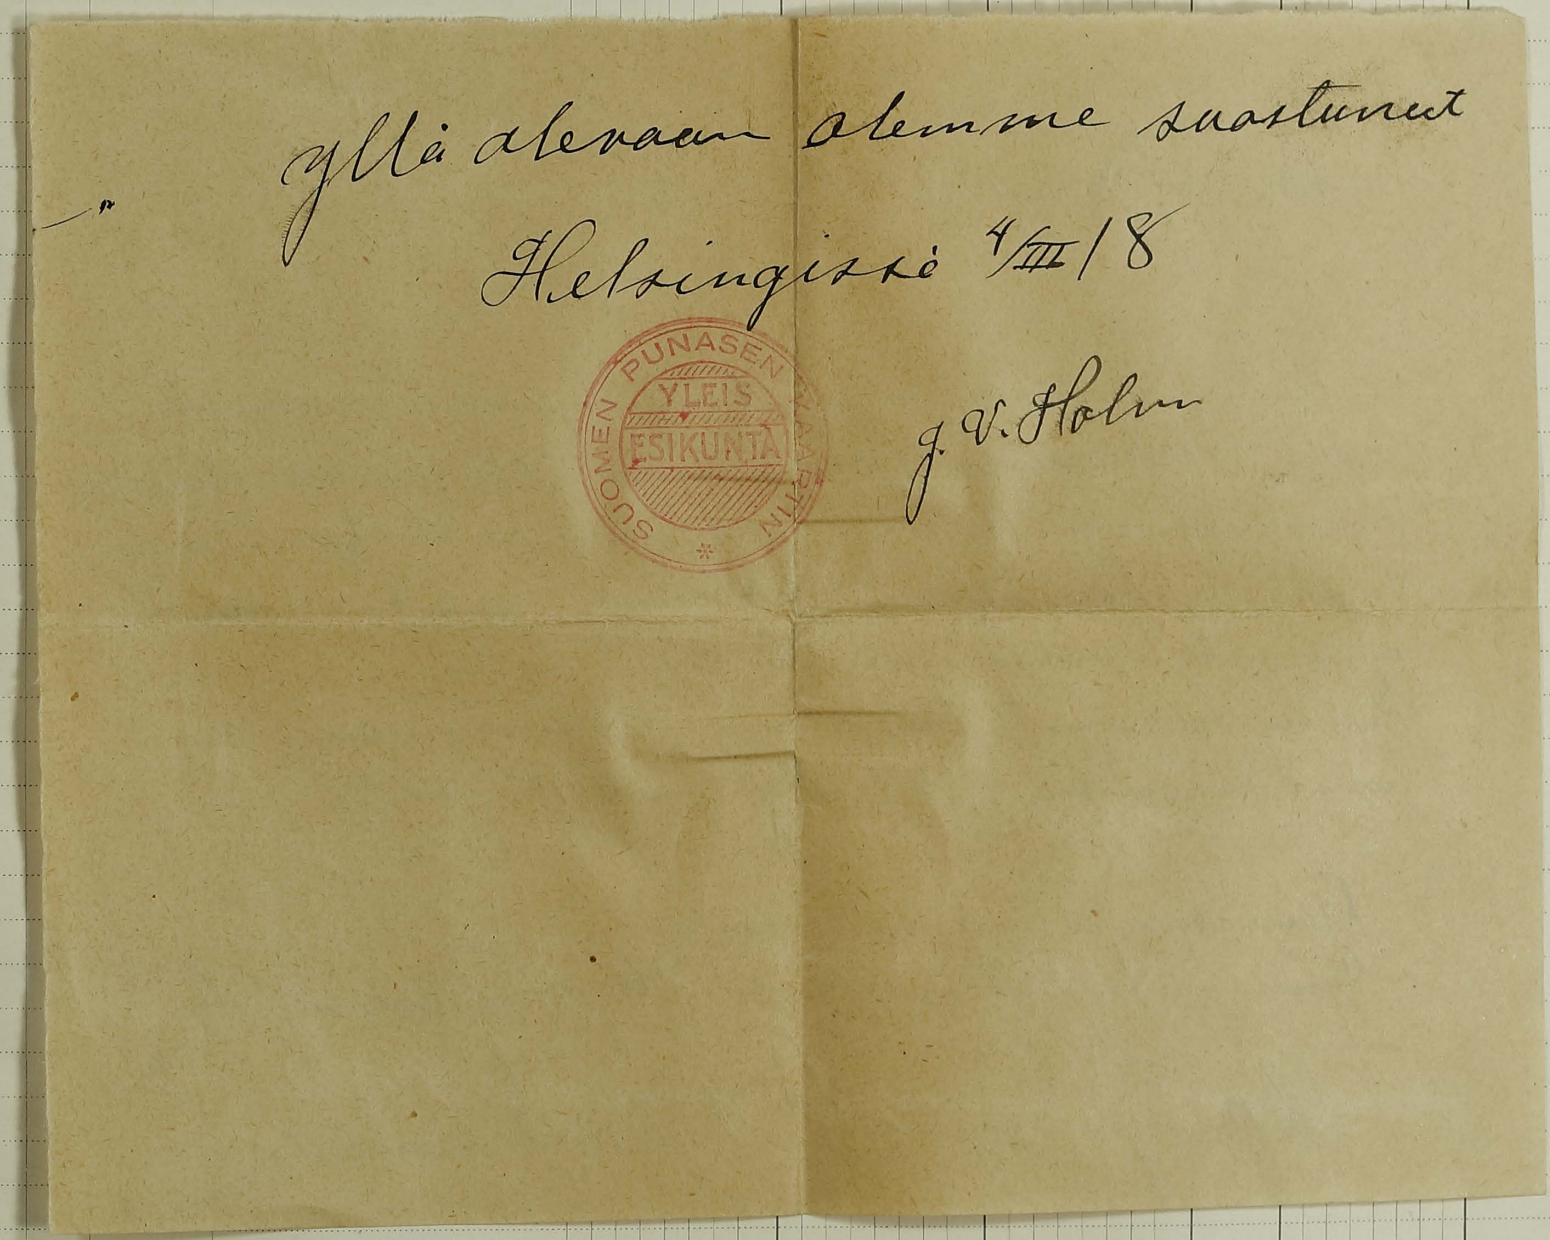 yllä olevaan olemme suostuneet
„
Helsingissä 4/III 18
SUOMEN PUNASEN KAARTIN
YLEIS
ESIKUNTA
J. V. Holm